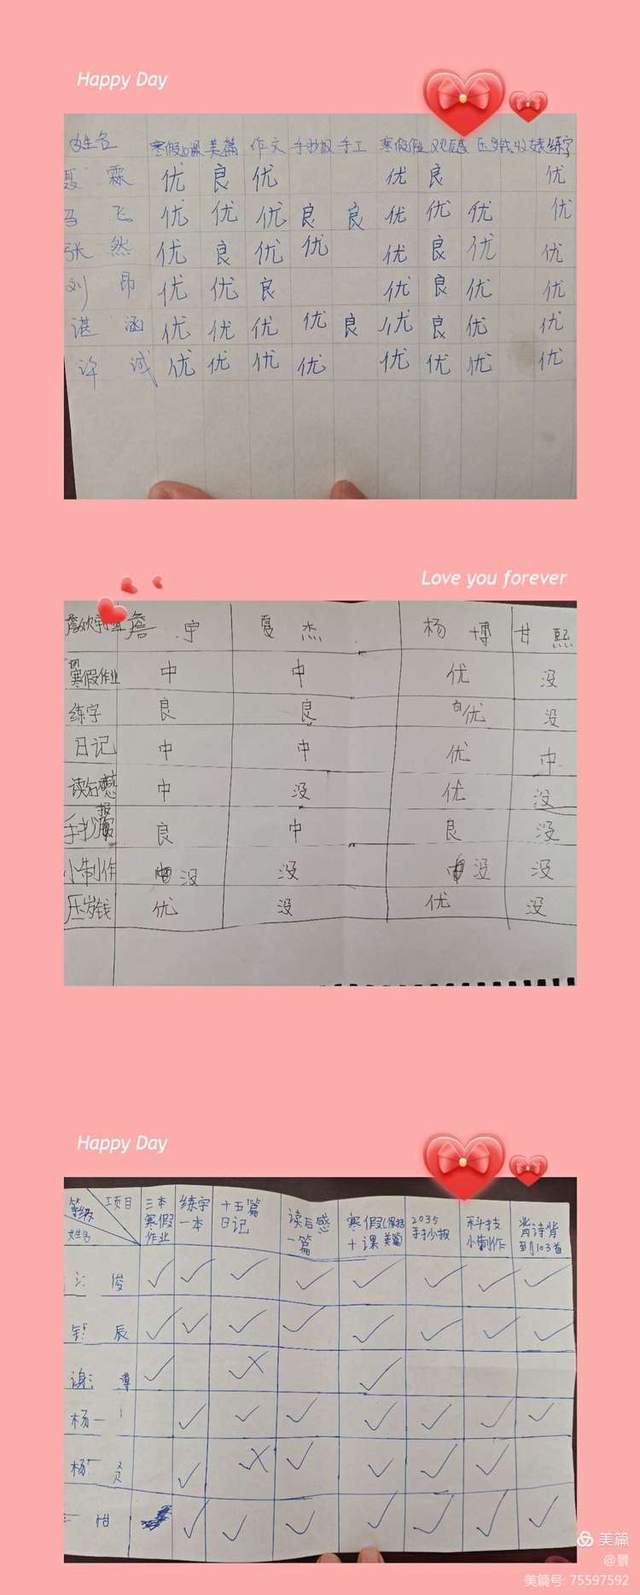 Happy Day
姓名 寒假 美篇 作文 手抄报 手工 寒假 观后感 压岁钱 练字
霖 优 良 优 优 良 优
马 飞 优 优 优 良 良 优 优 优 优
张 然 优 良 优 优 优 良 优 优
刘 昂 优 优 良 优 良 优 优
谌 涵 优 优 优 优 良 优 良 优 优
许 诚 优 优 优 优 优 优 优 优
Love you forever
詹 宇 夏 杰 杨 博 甘 熙
寒假作业 中 中 优 没
练字 良 良 优 没
日记 中 中 优 中
读后感 中 没 优 没
手抄报 良 中 良 没
小制作 没 没 没 没
压岁钱 优 没 优 没
Happy Day
等级 项目 姓名 三本寒假作业 练字一本 十五篇日记 读后感一篇 寒假 十课 美篇 2035手抄报 科技小制作 背诗背到103首
俊 ✓ ✓ ✓ ✓ ✓ ✓ ✓ ✓
辰 ✓ ✓ ✓ ✓ ✓ ✓ ✓ ✓
谢 博 ✓ ✓
杨 ✓ ✓ ✓ ✓ ✓ ✓ ✓
杨 ✓ ✓ ✓ ✓ ✓
✓ ✓ ✓ ✓ ✓ ✓ ✓
美篇
@景
美篇号: 75597592